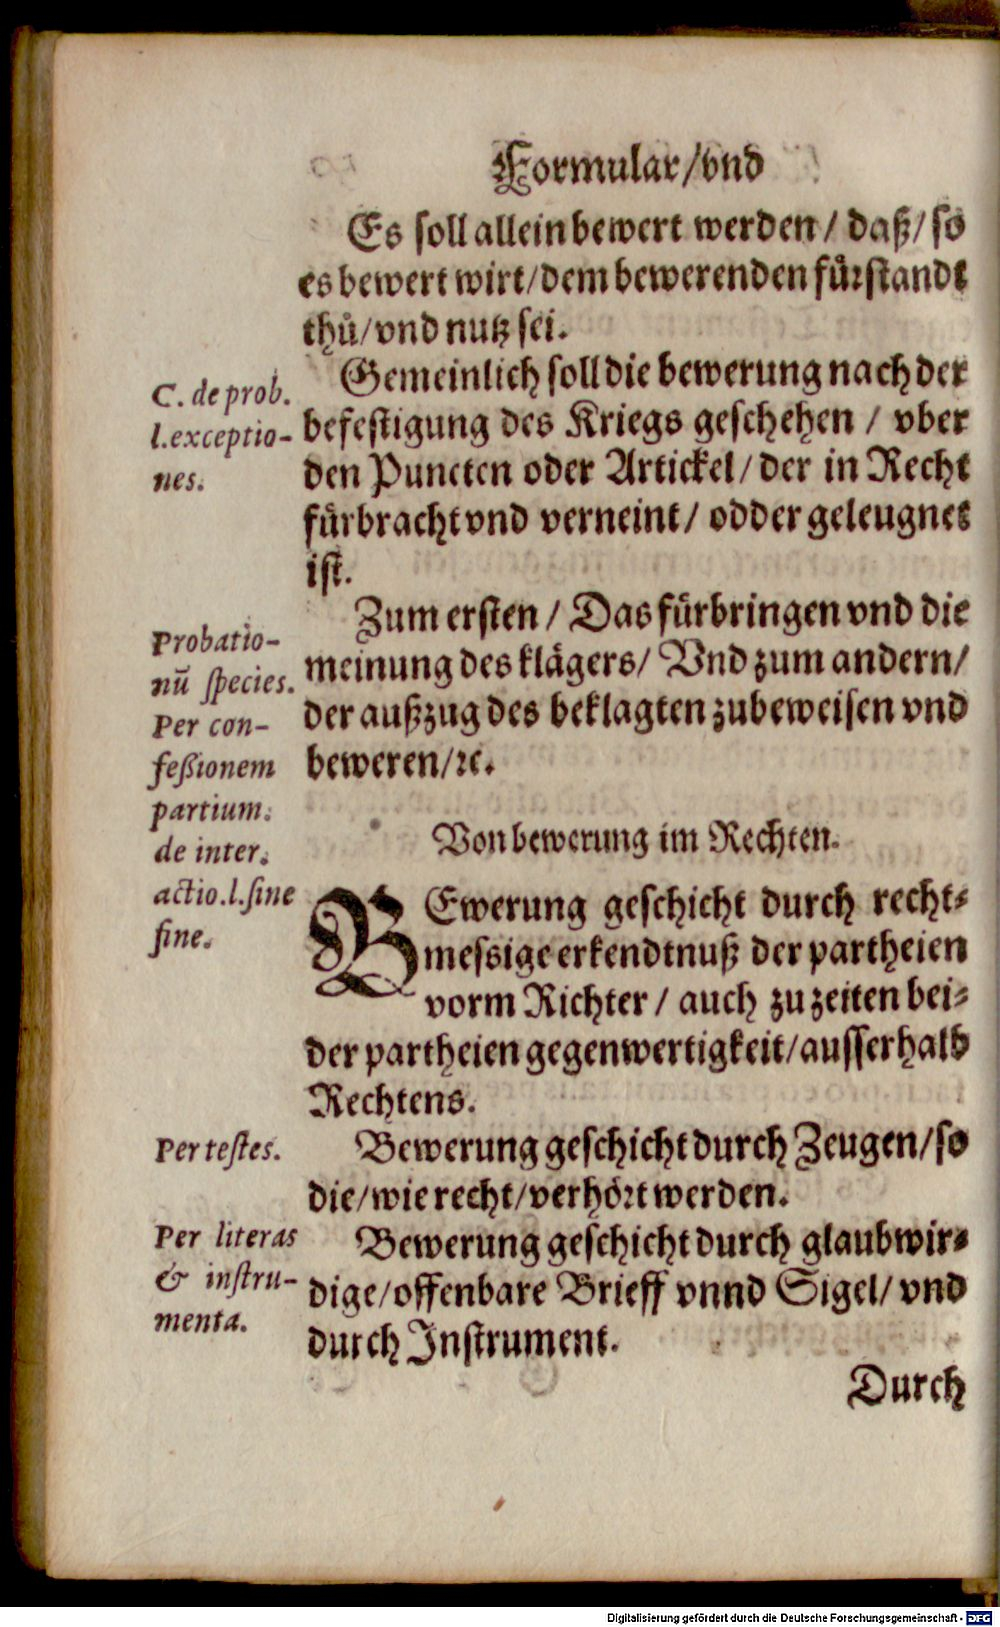 Formular/vnd
Es soll allein bewert werden / daß/so
es bewert wirt/dem bewerenden fürstandt
thů/vnd nutz sei.
Gemeinlich soll die bewerung nach der
befestigung des Kriegs geschehen / vber
den Puncten oder Artickel/der in Recht
fürbracht vnd verneint/ odder geleugnet
ist.
C. de prob.
l.exceptio-
nes.
Zum ersten / Das fürbringen vnd die
meinung des klägers/ Vnd zum andern/
der außzug des beklagten zubeweisen vnd
beweren/ꝛc.
Probatio-
nū species.
Per con-
feßionem
partium.
de inter.
actio.l.sine
fine.
Von bewerung im Rechten.
BEwerung geschicht durch recht-
messige erkendtnuß der partheien
vorm Richter / auch zu zeiten bei-
der partheien gegenwertigkeit/ausserhalb
Rechtens.
Bewerung geschicht durch Zeugen/so
die/wie recht/verhört werden.
Per testes.
Bewerung geschicht durch glaubwir-
dige/offenbare Brieff vnnd Sigel/ vnd
durch Instrument.
Per literas
& instru-
menta.
Durch
Digitalisierung gefördert durch die Deutsche Forschungsgemeinschaft - DFG